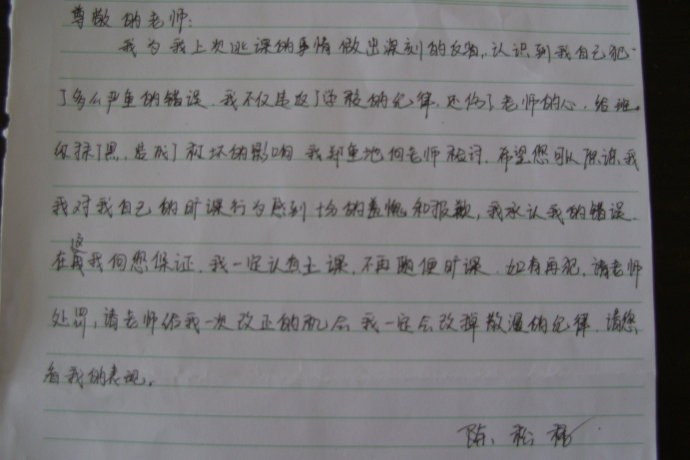 尊敬的老师:
我为我上次逃课的事情做出深刻的反省,认识到我自己犯
了多么严重的错误.我不仅违反了学校的纪律,还伤了老师的心,给班
级抹了黑,造成了很坏的影响 我郑重地向老师检讨.希望您可以原谅我
我对我自己的旷课行为感到十分的羞愧和抱歉,我承认我的错误.
在这我向您保证.我一定认真上课,不再随便旷课.如有再犯,请老师
处罚,请老师给我一次改正的机会 我一定会改掉散漫的纪律.请您
看我的表现.
陈松